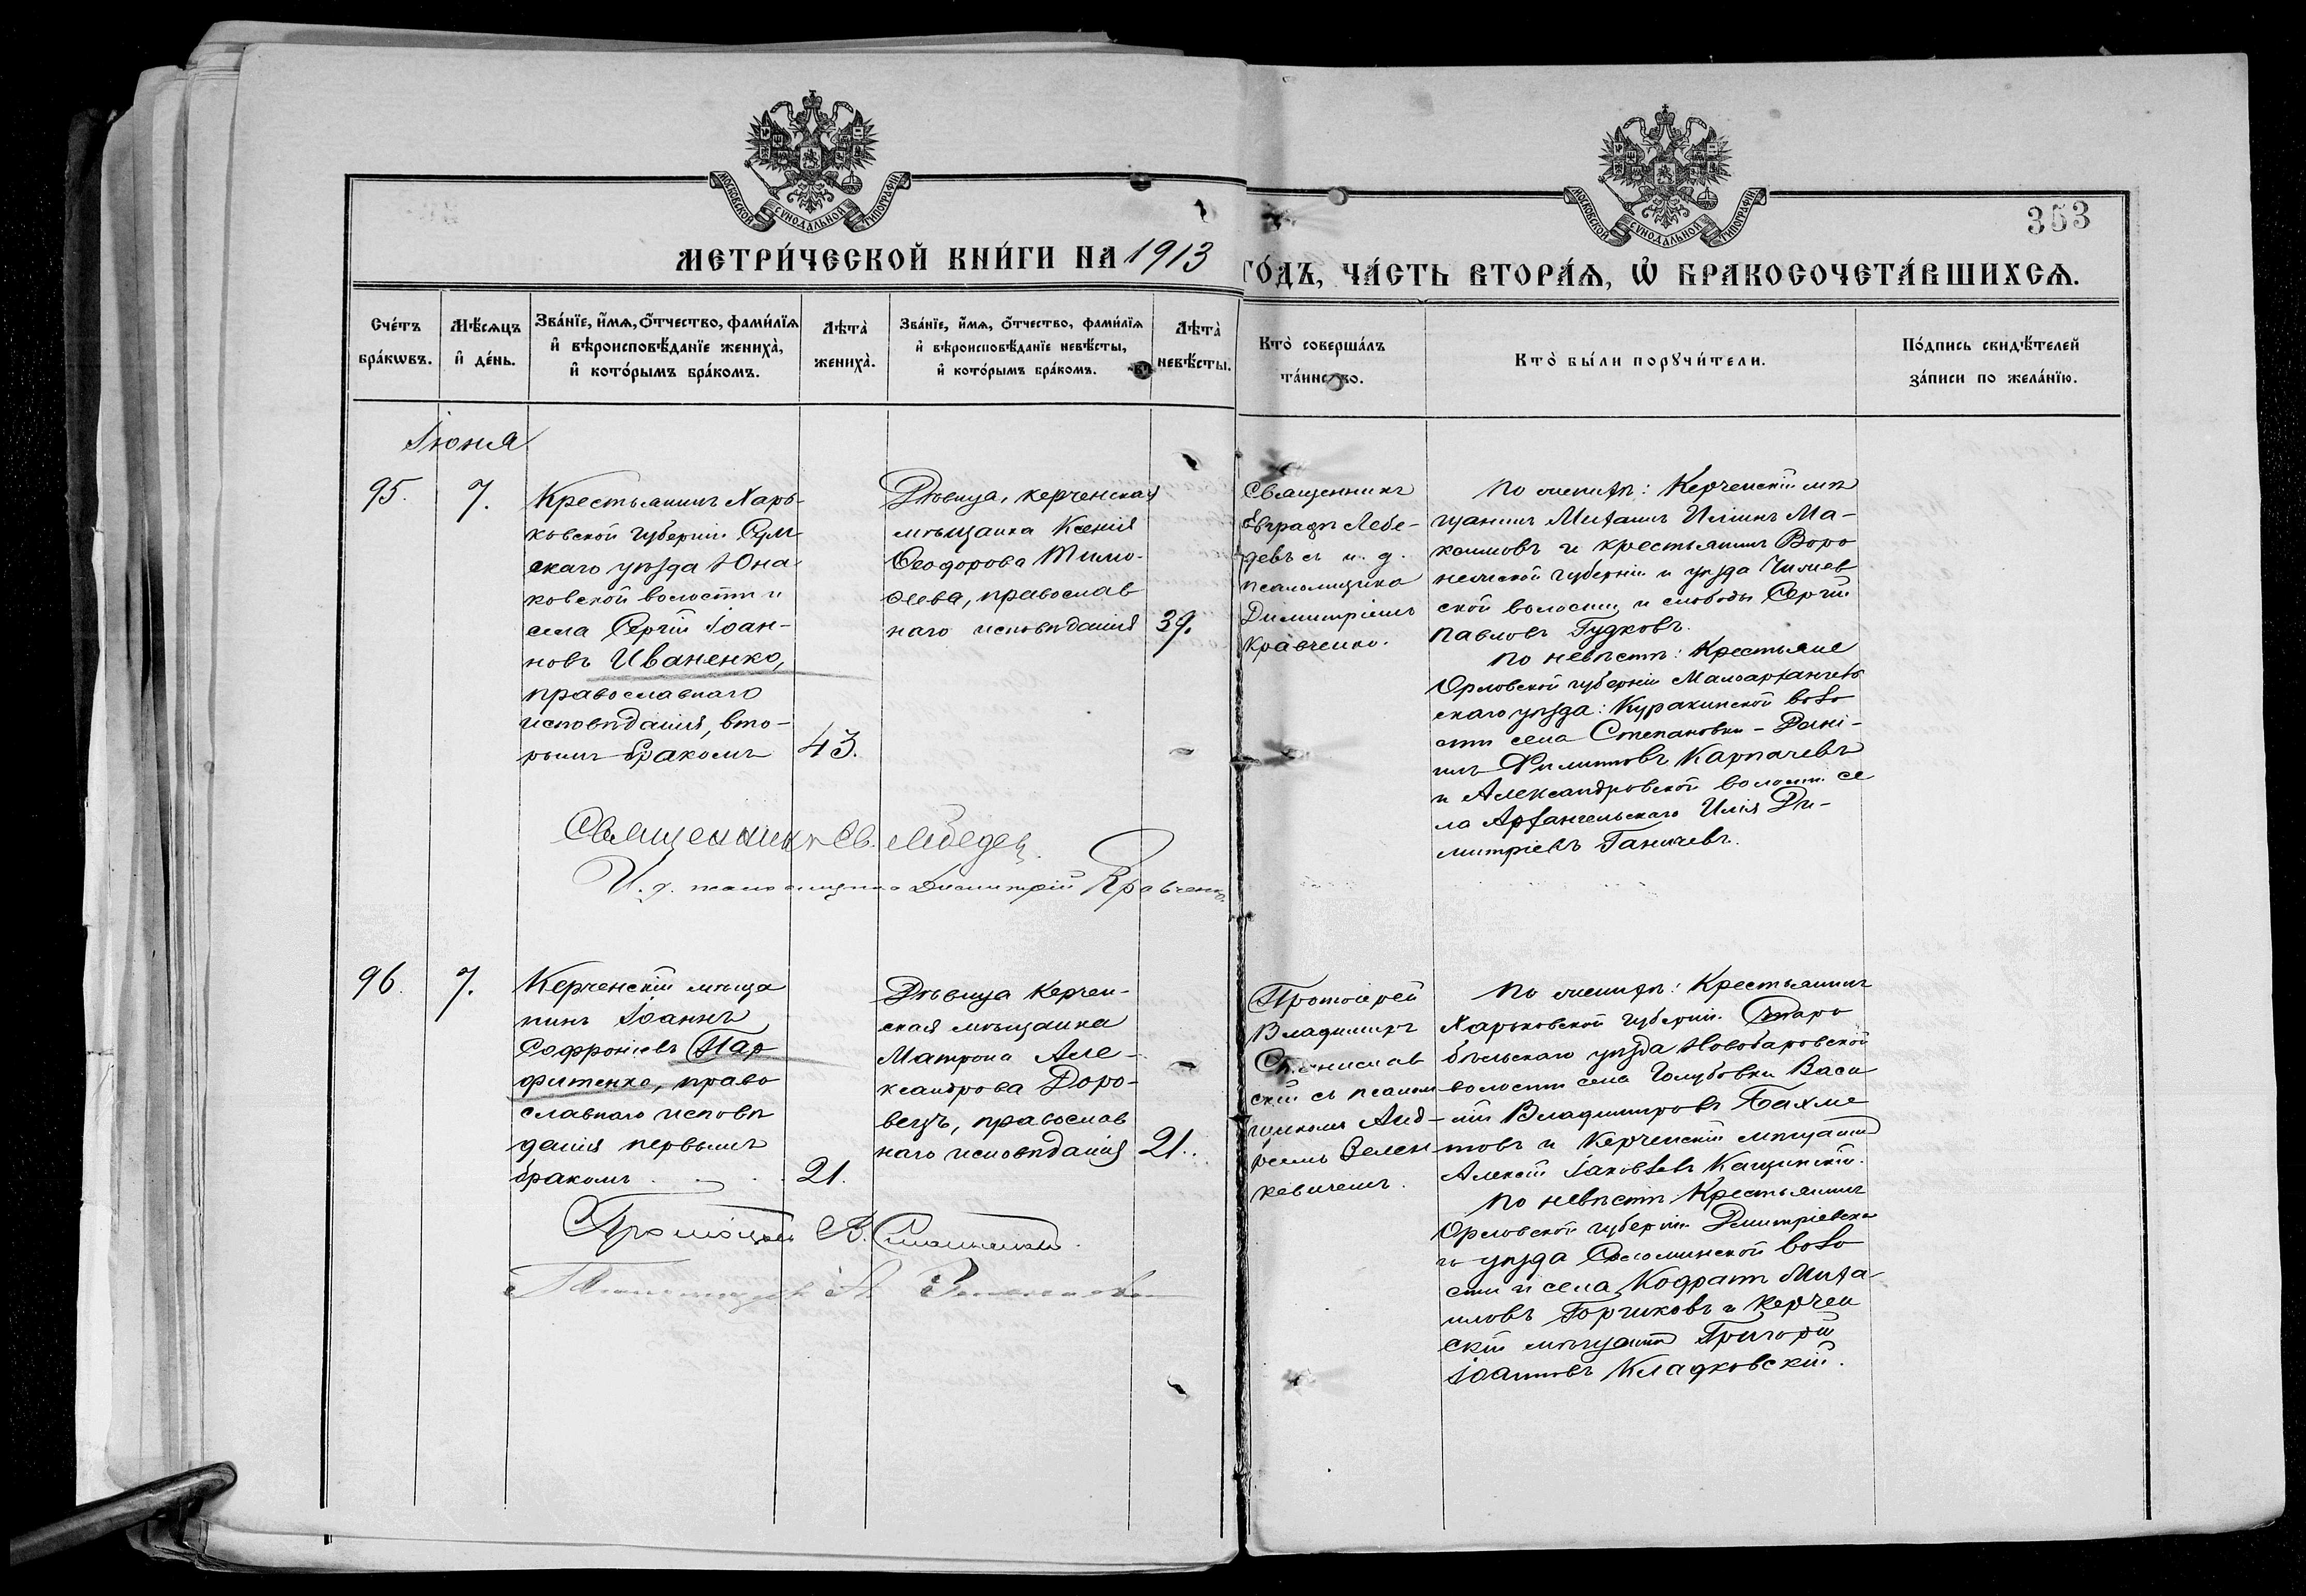 МОСКОВСКОЙ СУНОДАЛЬНОЙ ТИПОГРАФІИ
МОСКОВСКОЙ СУНОДАЛЬНОЙ ТИПОГРАФІИ
353
МЕТРИ́ЧЕСКОЙ КНИ́ГИ НА 1913
ГО́ДЪ, ЧА́СТЬ ВТОРА́Ѧ, Ѽ БРАКОСОЧЕТА́ВШИХСѦ.
Сче́тъ
бра́кѡвъ.
Мѣ́сѧцъ
и҆ де́нь.
Зва́нїе, и҆́мѧ, ѻ҆́тчество, фами́лїѧ
и҆ вѣроисповѣ́данїе жениха̀,
и҆ кото́рымъ бра́комъ.
Лѣта̀
жениха̀.
Зва́нїе, и҆́мѧ, ѻ҆́тчество, фами́лїѧ
и҆ вѣроисповѣ́данїе невѣ́сты,
и҆ кото́рымъ бра́комъ.
Лѣта̀
невѣ́сты.
Кто̀ соверша́лъ
та́инство.
Кто̀ бы́ли порꙋчи́тели.
По́дпись свидѣ́телей
за́писи по жела́нїю.
Іюня
95.
7.
Крестьянинъ Харь-
ковской губерніи Сум
скаго уѣзда Юна
ковской волости и
села Сергій Іоан-
новъ Иваненко,
православнаго
исповѣданія, вто-
рымъ бракомъ
43.
Дѣвица, керченская
мѣщанка Ксенія
Ѳеодорова Тимо-
ѳеева, православ
наго исповѣданія
39.
Священникъ
Евграфъ Лебе-
девъ съ и. д.
псаломщика
Димитріемъ
Кравченко.
По женихѣ: Керченскій мѣ
щанинъ Михаилъ Иліинъ Ма-
ксимовъ и крестьянинъ Воро
нежской губерніи и уѣзда
ской волости и слободы Сергій
Павловъ Гудковъ.
По невѣстѣ: Крестьяне
Орловской губерніи Малоархангель
скаго уѣзда: Куракинской воло
сти села Степановки - Дани-
илъ Филипповъ Карпачевъ
и Александровской волости се
ла Архангельскаго Илія Ди-
митріевъ Ганичевъ.
Священникъ Ев. Лебедев.
И. д. псаломщика Димитрій Кравченко.
96.
7.
Керченскій мѣща
нинъ Іоаннъ
Софроніевъ Пар
фитенко, право
славнаго исповѣ
данія первымъ
бракомъ
21.
Дѣвица Керчен-
ская мѣщанка
Матрона Але-
ксандрова Доро-
вецъ, православ
наго исповѣданія
21.
Протоіерей
Владимиръ
Станислав
скій съ псалом
щикомъ Анд-
реемъ Зелен
кевичемъ.
По женихѣ: Крестьянинъ
Харьковской губерніи Старо
бѣльскаго уѣзда
волости села Голубовки Васи
лій Владимировъ Бахме
товъ и Керченскій мѣщанинъ
Алексій Іаковлевъ Кащинскій.
По невѣстѣ Крестьянинъ
Орловской губерніи Дмитріевска
го уѣзда Соломинской воло
сти и села Кодратъ Миха-
иловъ Горчиковъ и Керчен
скій мѣщанинъ Григорій
Іоанновъ Кладковскій.
Протоіерей В. Станиславскій.
Псаломщикъ А. Зеленкевичъ